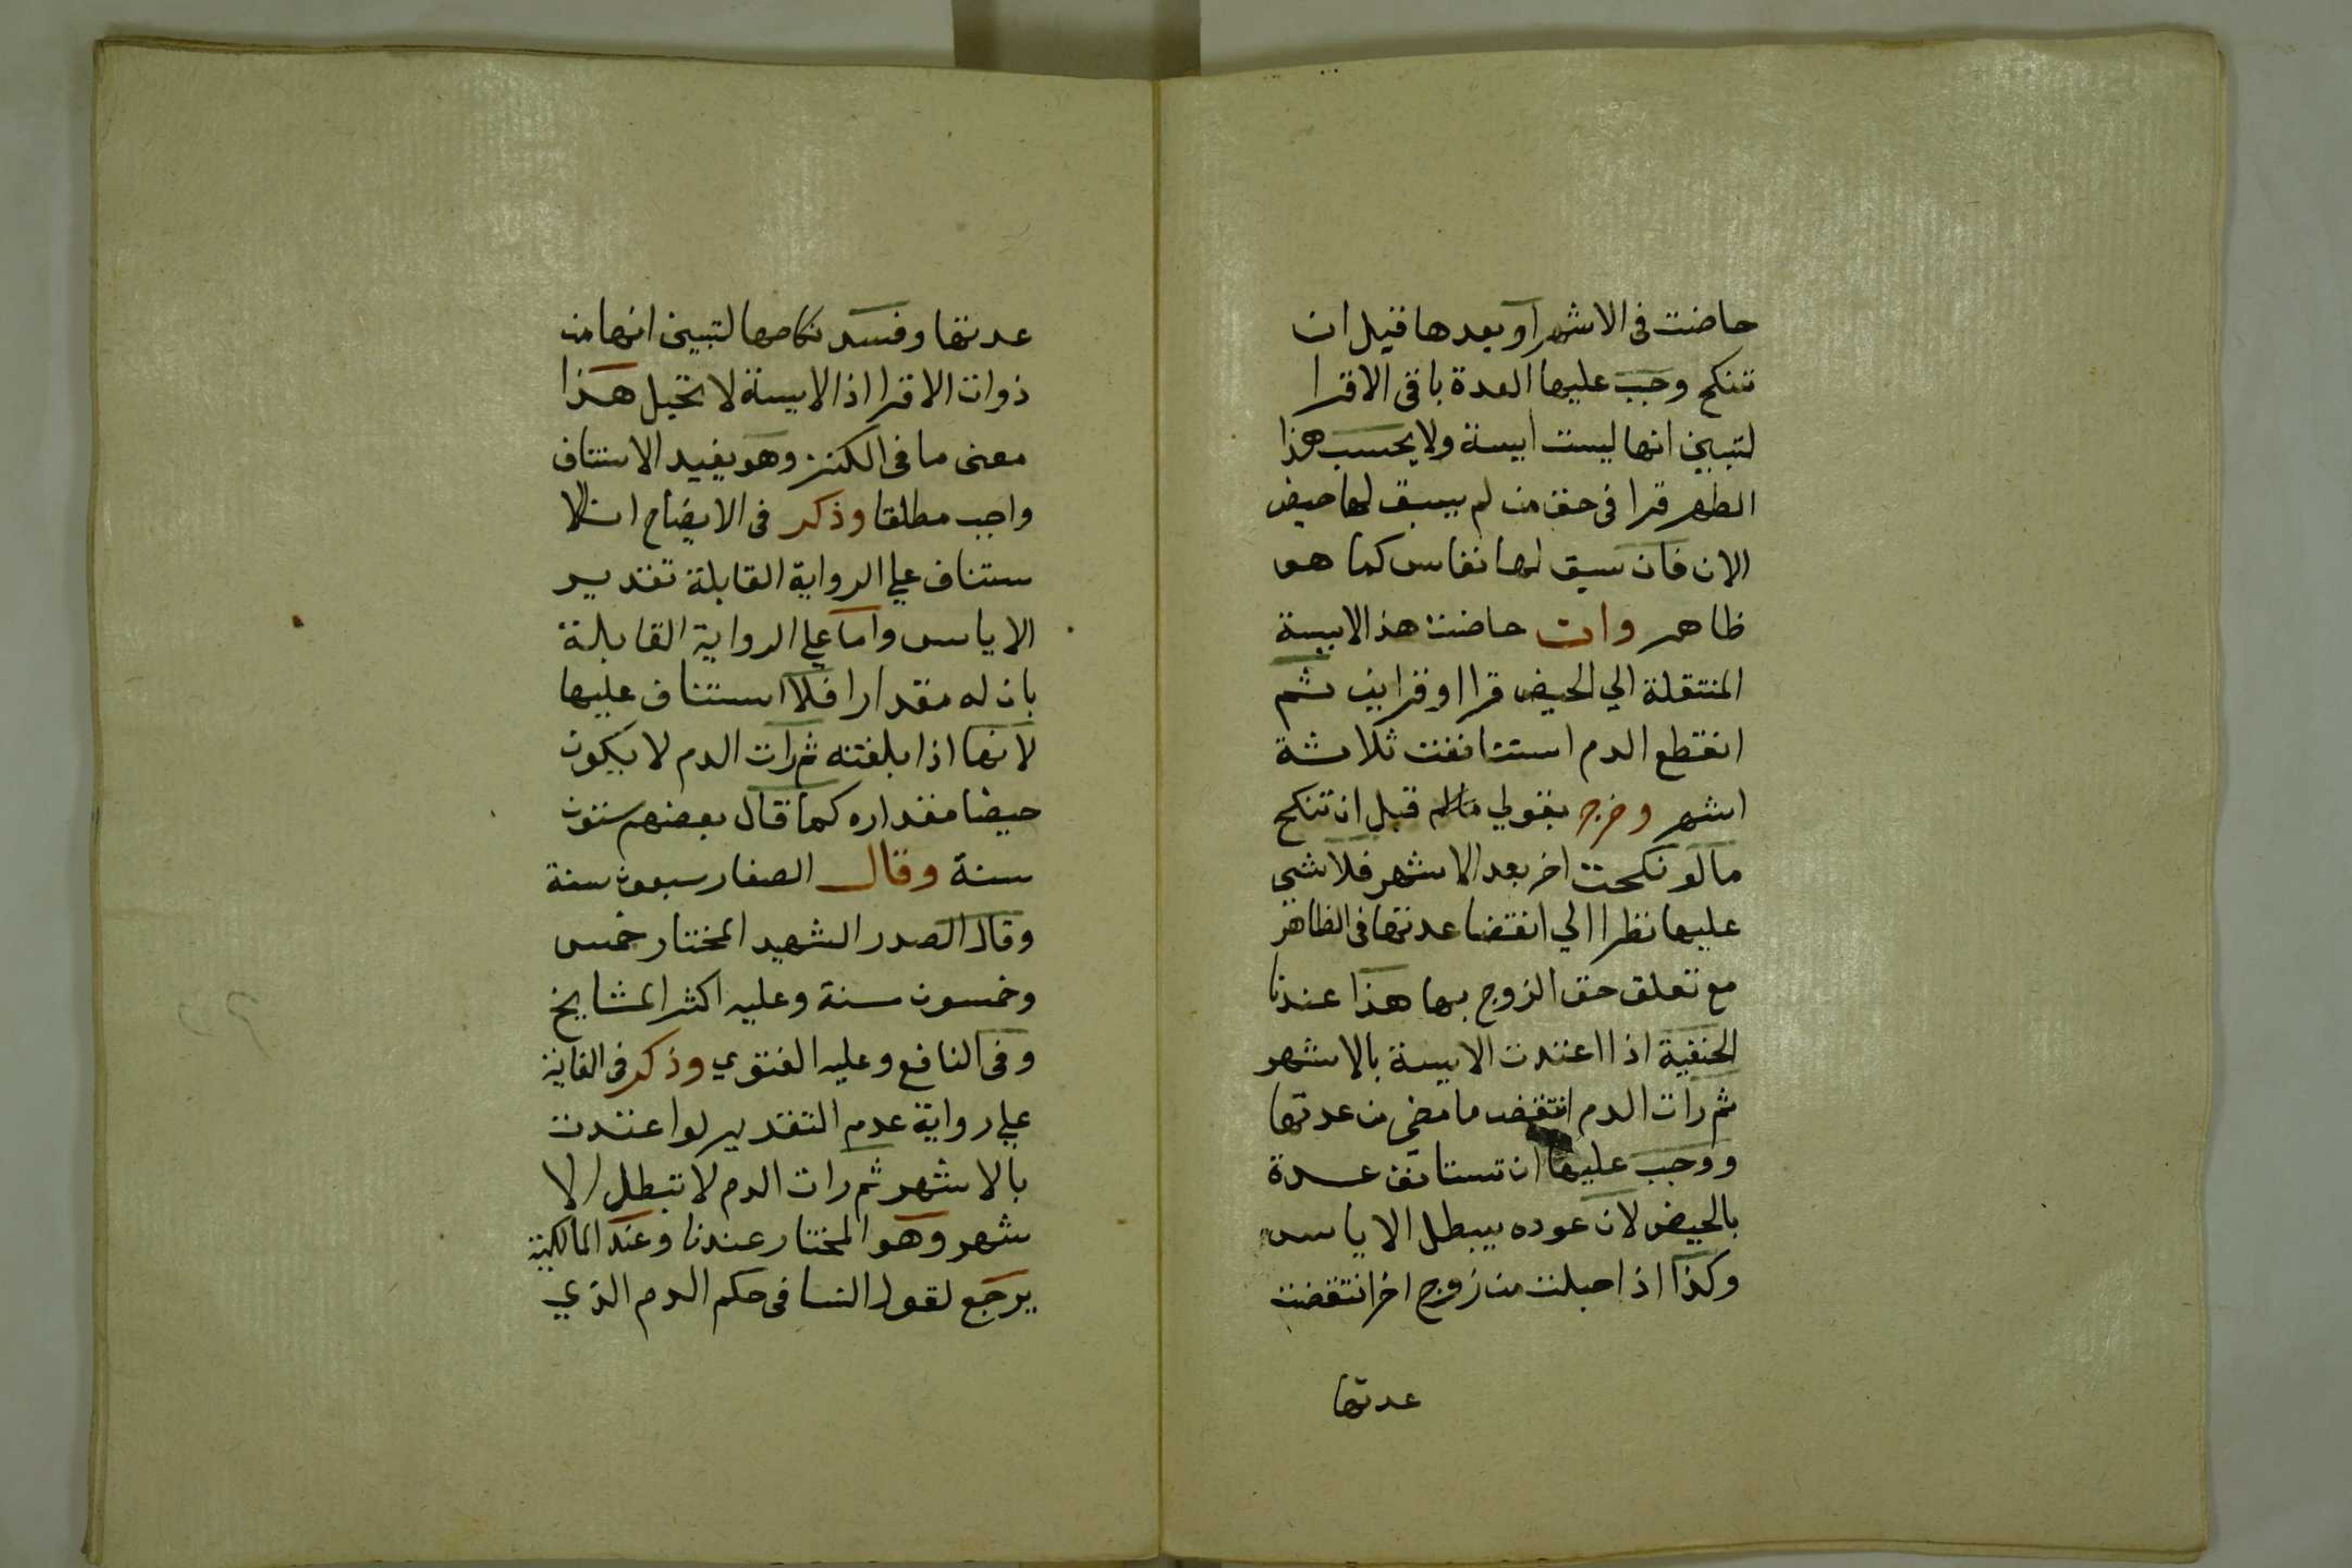 حاضت فى الاشهر او بعدها قبل ان
تنكح وجب عليها العدة باقى الاقرا
لتبين انها ليست ايسة ولا يحسب هذا
الطهر قرا فى حق من لم يسبق لها حيض
الان فان سبق لها نفاس كما هو
ظاهر وان حاضت هذ الايسة
المنتقلة الي الحيض قرا او قراين ثم
انقطع الدم استتانفت ثلاثة
اشهر وخرج بقولي قبل ان تنكح
ما لو نكحت اخر بعد الاشهر فلا شي
عليها نظرا الي انقضا عدتها فى الظاهر
مع تعلق حق الزوج بها هذا عندنا
الحنفية اذا اعتدت الايسة بالاشهر
ثم رات الدم انتقض ما مضي من عدتها
ووجب عليها ان تستانف عدة
بالحيض لان عوده يبطل الاياس
وكذا اذا حبلت من زوج اخر انتقضت
عدتها
عدتها وفسد نكاحها لتبين انها من
ذوات الاقرا اذ الايسة لا تحبل هذا
معنى ما فى الكنز وهو يفيد الاستناف
واجب مطلقا وذكر فى الايضاح ان الا
ستناف علي الرواية القايلة تقدير
الاياس واما علي الرواية القايلة
بان له مقدارا فلا استناف عليها
لانها اذا بلغته ثم رات الدم لا يكون
حيضا مقداره كما قال بعضهم ستون
سنة وقال الصفار سبعون سنة
وقال الصدر الشهيد المختار خمس
وخمسون سنة وعليه اكثر المشايخ
وفى النافع وعليه الفتوي وذكر فى الغاية
علي رواية عدم التقدير لو اعتدت
بالاشهر ثم رات الدم لا تبطل الا
شهر وهو المختار عندنا وعند المالكية
يرجع لقول النسا فى حكم الدم الذي